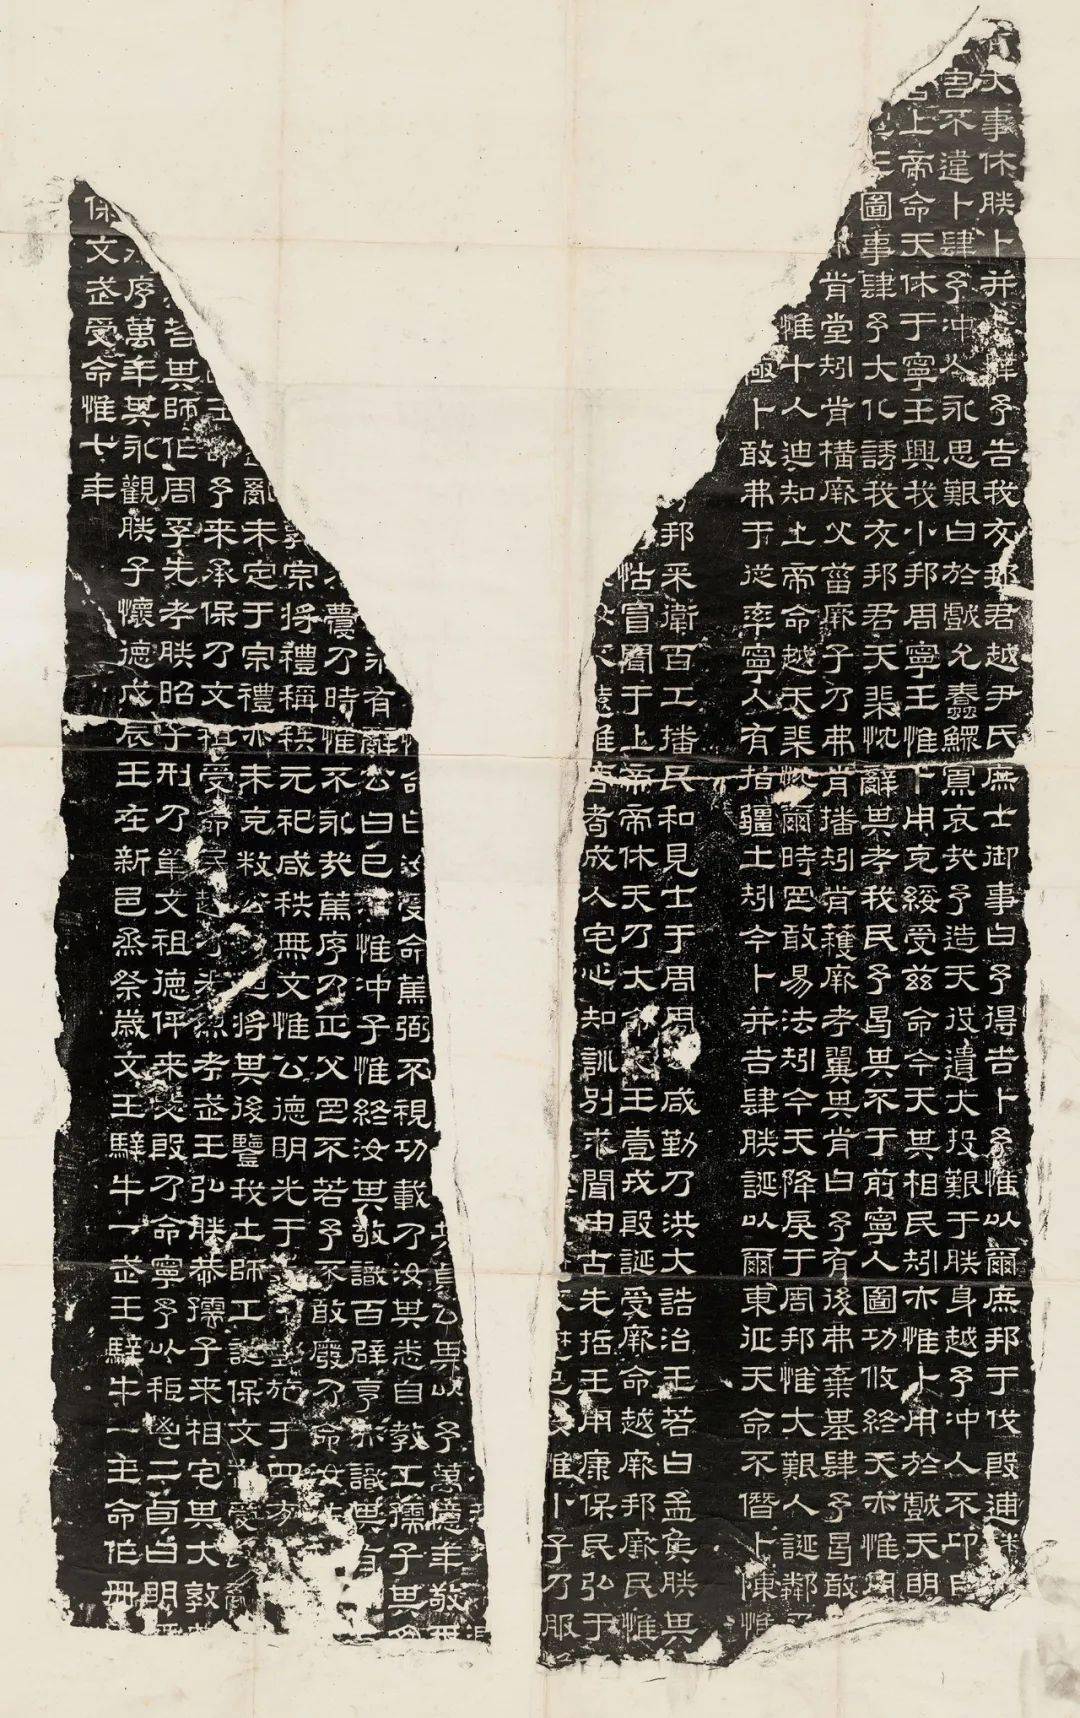 大事休朕卜并吉肆予告我友邦君越尹氏庶士御事曰予得吉卜予惟以爾庶邦于伐殷逋
害不違卜肆予沖人永思艱曰於戲允蠢鰥寡哀哉予造天役遺大投艱于朕身越予沖人不卬自
上帝命天休于寧王興我小邦周寧王惟卜用克綏受茲命今天其相民矧亦惟卜用於戲天明
王圖事肆予大化誘我友邦君天棐忱辭其考我民予曷其不于前寧人圖功攸終天亦惟用
肯堂矧肯構厥父菑厥子乃弗肯播矧肯穫厥考翼其肯曰予有後弗棄基肆予曷敢
惟十人迪知上帝命越天棐忱爾時罔敢易法矧今天降戾于周邦惟大艱人誕鄰
極卜敢弗于從率寧人有指疆土矧今卜并吉肆朕誕以爾東征天命不僭卜陳惟
邦采衛百工播民和見士于周周咸勤乃洪大誥治王若曰孟侯朕其
怙冒聞于上帝帝休天乃大命王壹戎殷誕受厥命越厥邦厥民惟
遠惟耇成人宅心知訓別求聞由古先哲王用康保民弘于
惟小子乃服
貞公其以予萬億年敬
曰汝受命篤弼丕視功載乃汝其悉自教工孺子其
有辭公曰已惟沖子惟終汝其敬識百辟享亦識其有
蘉乃時惟不永哉篤序乃正父罔不若予不敢廢乃命汝
宗將禮稱秩元祀咸秩無文惟公德明光于施于四方
亂未定于宗禮亦未克敉迪將其後鑒我士師工誕保文受
王命予來承保乃文祖受命民越乃光烈考武王弘朕恭孺子來相宅其大敦
其師作周孚先考朕昭子刑乃單文祖德伻來毖殷乃命寧予以秬鬯二卣曰明
序萬年其永觀朕子懷德戊辰王在新邑烝祭歲文王騂牛一武王騂牛一王命作冊
保文武受命惟七年